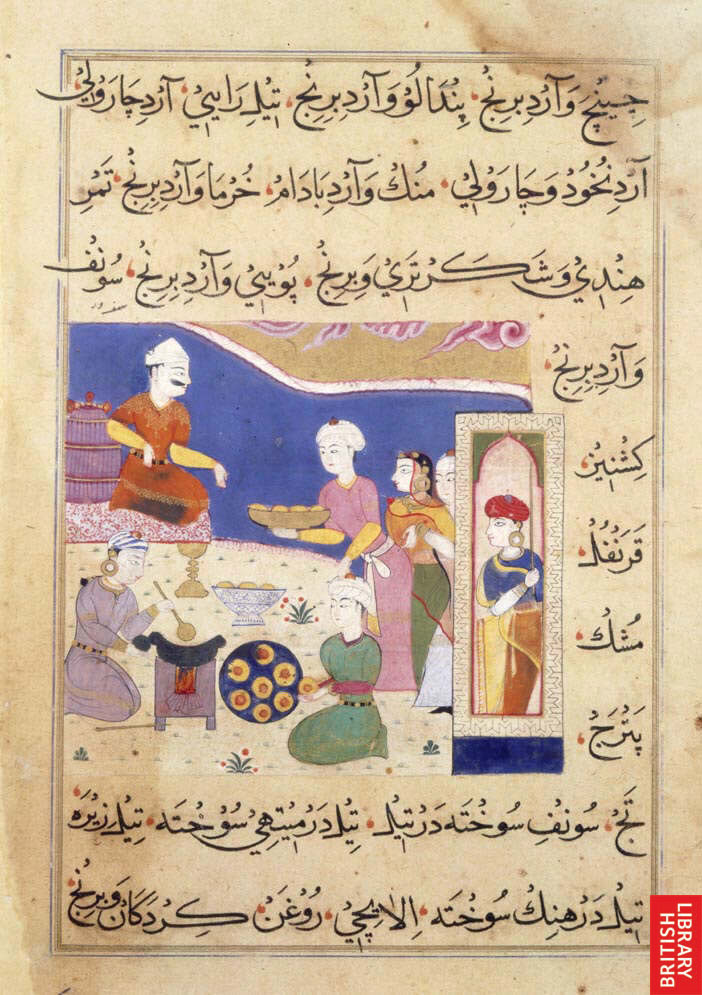 چینچ وآرد برنج، پندالو وآرد برنج، تیل رایی، آرد چارولی
آرد نخود و چارولی، منک وآرد بادام، خرما وآرد برنج، تمر
هندی و شاکر تری و برنج، پویی وآرد برنج، سونف
وآرد برنج،
کشنیز،
قرنفل،
مشک،
پترج،
تج، سونف سوخته در تیل، تیل در میتهی سوخته، تیل زیره
تیل در هنک سوخته، الایچی، روغن کردکان و برنج
BRITISH
LIBRARY